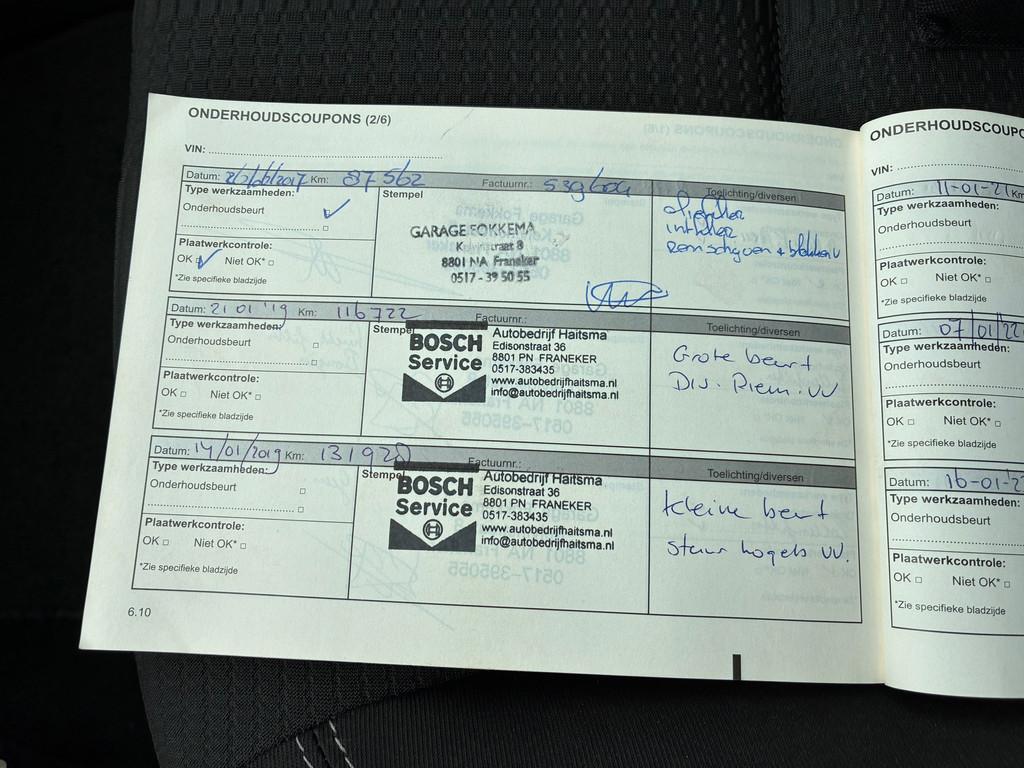 ONDERHOUDSCOUPONS (2/6)
VIN:
Datum: Km: 87562 Factuurnr.: Toelichting/diversen
Type werkzaamheden: Stempel
Onderhoudsbeurt
Plaatwerkcontrole:
OK Niet OK*
*Zie specifieke bladzijde
GARAGE FOKKEMA
8801 NA Franeker
0517 - 39 50 55
oliefilter
intfilter
Remschijven + blokken V
Datum: 21 01 '19 Km: 116722 Factuurnr.: Toelichting/diversen
Type werkzaamheden: Stempel
Onderhoudsbeurt
Plaatwerkcontrole:
OK Niet OK*
*Zie specifieke bladzijde
BOSCH
Service
Autobedrijf Haitsma
Edisonstraat 36
8801 PN FRANEKER
0517-383435
www.autobedrijfhaitsma.nl
info@autobedrijfhaitsma.nl
Grote beurt
Dis. Riem. VV
Datum: 14/01/2019 Km: 131920 Factuurnr.: Toelichting/diversen
Type werkzaamheden: Stempel
Onderhoudsbeurt
Plaatwerkcontrole:
OK Niet OK*
*Zie specifieke bladzijde
BOSCH
Service
Autobedrijf Haitsma
Edisonstraat 36
8801 PN FRANEKER
0517-383435
www.autobedrijfhaitsma.nl
info@autobedrijfhaitsma.nl
Kleine beurt
stuur kogels VV.
6.10
ONDERHOUDSCOUP
VIN:
Datum: 11-01-21 Km
Type werkzaamheden:
Onderhoudsbeurt
Plaatwerkcontrole:
OK Niet OK*
*Zie specifieke bladzijde
Datum: 07/01/22
Type werkzaamheden:
Onderhoudsbeurt
Plaatwerkcontrole:
OK Niet OK*
*Zie specifieke bladzijde
Datum: 16-01-2
Type werkzaamheden:
Onderhoudsbeurt
Plaatwerkcontrole:
OK Niet OK*
*Zie specifieke bladzijde